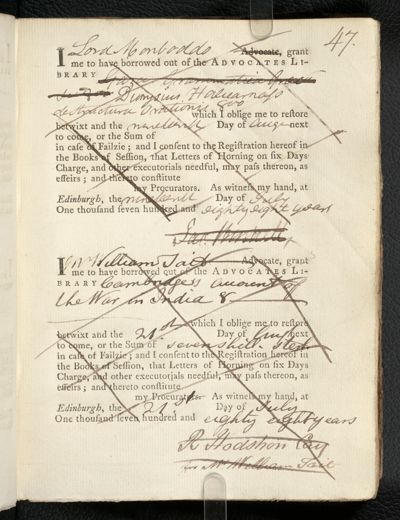 47.
I Lord Monboddo Advocate, grant
me to have borrowed out of the ADVOCATES LI-
BRARY
Dionysius Halicarnass
de structura Orationis 8vo
which I oblige me to reſtore
betwixt and the nineteenth Day of Augt next
to come, or the Sum of
in caſe of Failzie; and I conſent to the Regiſtration hereof in
the Books of Seſſion, that Letters of Horning on ſix Days
Charge, and other executorials needful, may paſs thereon, as
effeirs; and thereto conſtitute
my Procurators. As witneſs my hand, at
Edinburgh, the nineteenth Day of July
One thouſand ſeven hundred and eighty eight years
I Mr William Tait Advocate, grant
me to have borrowed out of the ADVOCATES LI-
BRARY Cambridge's account of
the War in India 8
which I oblige me to reſtore
betwixt and the 21st Day of next
to come, or the Sum of seven shill. ster
in caſe of Failzie; and I conſent to the Regiſtration hereof in
the Books of Seſſion, that Letters of Horning on ſix Days
Charge, and other executorials needful, may paſs thereon, as
effeirs; and thereto conſtitute
my Procurators As witneſs my hand, at
Edinburgh, the 21st Day of July
One thouſand ſeven hundred and eighty eight years
R Hodshon Cay
for Mr William Tait